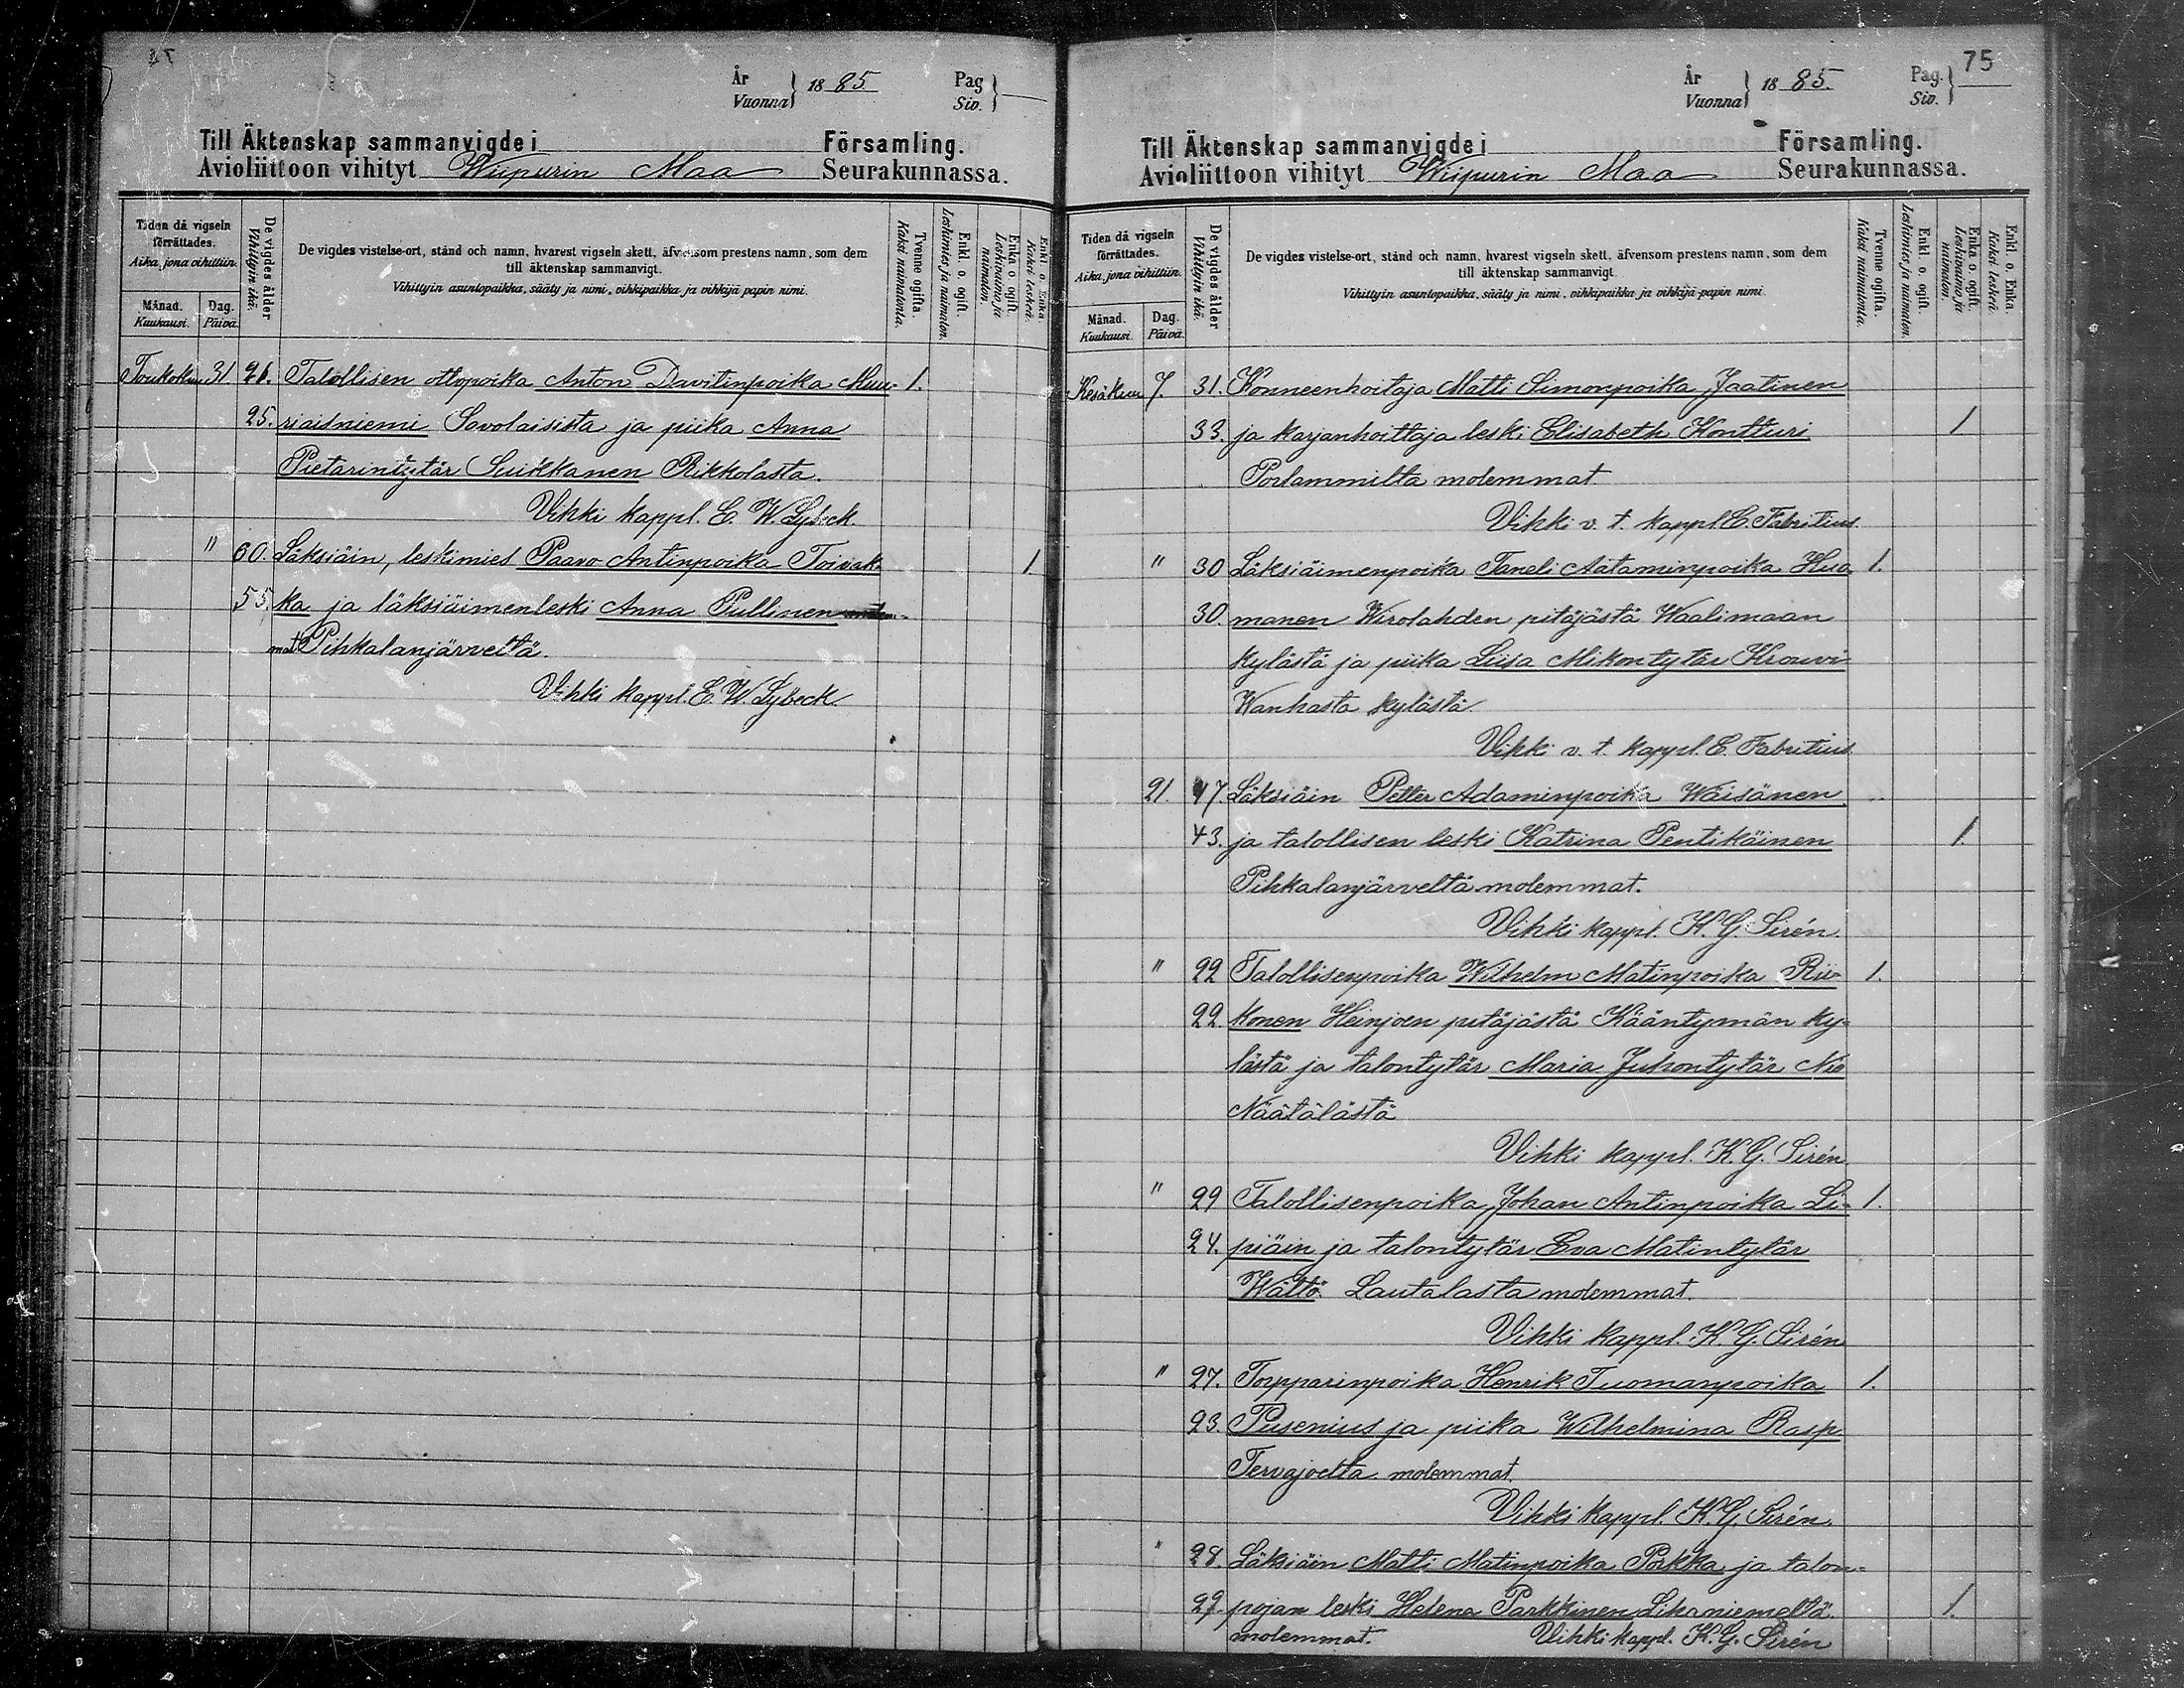 År
Vuonna } 1885 Pag
Siv. }
Till Äktenskap sammanvigde i Församling.
Avioliittoon vihityt Wiipurin Maa Seurakunnassa.
Tiden då vigseln förrättades.
Aika, jona vihittiin.
Månad.
Kuukausi.
Dag.
Päivä.
De vigdes ålder
Vihittyin ikä.
De vigdes vistelse-ort, stånd och namn, hvarest vigseln skett, äfvensom prestens namn, som dem
till äktenskap sammanvigt.
Vihittyin asuntopaikka, sääty ja nimi, vihkipaikka ja vihkijä-papin nimi.
Tvenne ogifta.
Kaksi naimatonta.
Enkl. o. ogift.
Leskimies ja naimaton.
Enka o. ogift.
Leskivaimo ja naimaton.
Enkl. o. Enka.
Kaksi leskeä.
Toukokuu 31 21. Talollisen ottopoika Anton Davitinpoika Muu- 1.
25. riaisniemi Savolaisista ja piika Anna
Pietarintytär Suikkanen Rikkolasta.
Vihki kappl. E. W. Lybeck.
" 60. Läksiäin, leskimies Paavo Antinpoika Toivak- 1.
55. ka ja läksiäimenleski Anna Pullinen molem-
mat Pihkalanjärveltä.
Vihki kappl. E. W. Lybeck.
75
År
Vuonna } 1885. Pag.
Siv. }
Till Äktenskap sammanvigde i Församling.
Avioliittoon vihityt Wiipurin Maa Seurakunnassa.
Tiden då vigseln förrättades.
Aika, jona vihittiin.
Månad.
Kuukausi.
Dag.
Päivä.
De vigdes ålder
Vihittyin ikä.
De vigdes vistelse-ort, stånd och namn, hvarest vigseln skett, äfvensom prestens namn, som dem
till äktenskap sammanvigt.
Vihittyin asuntopaikka, sääty ja nimi, vihkipaikka ja vihkijä-papin nimi.
Tvenne ogifta.
Kaksi naimatonta.
Enkl. o. ogift.
Leskimies ja naimaton.
Enka o. ogift.
Leskivaimo ja naimaton.
Enkl. o. Enka.
Kaksi leskeä.
Kesäkuu 7. 31. Konneenhoitaja Matti Simonpoika Jaatinen
33. ja karjanhoittaja leski Elisabeth Kontturi 1
Porlammilta molemmat
Vihki v. t. kappl. E. Fabritius
" 30 Läksiäimenpoika Taneli Aataminpoika Huo- 1.
30. manen Wirolahden pitäjästä Waalimaan
kylästä ja piika Liisa Mikontytär Krouvi
Wanhasta kylästä.
Vihki v. t. kappl. E. Fabritius
21. 47. Läksiäin Petter Adaminpoika Wäisänen
43. ja talollisen leski Katrina Pentikäinen 1.
Pihkalanjärveltä molemmat.
Vihki kappl. K. G. Sirén.
" 22 Talollisenpoika Wilhelm Matinpoika Rii- 1.
22. konen Heinjoen pitäjästä Kääntymän ky-
lästä ja talontytär Maria Juhontytär
Näätälästä
Vihki kappl. K. G. Sirén.
" 29 Talollisenpoika Johan Antinpoika Li- 1.
24. piäin ja talontytär Eva Matintytär
Wättö. Lautalasta molemmat.
Vihki kappl. K. G. Sirén
" 27. Torpparinpoika Henrik Tuomanpoika 1.
23. Pusenius ja piika Wilhelmina Rasp
Tervajoelta molemmat.
Vihki kappl. K. G. Sirén.
" 28. Läksiäin Matti Matinpoika Porkka ja talon-
29. pojan leski Helena Parkkinen Liharniemeltä 1.
molemmat. Vihki kappl. K. G. Sirén